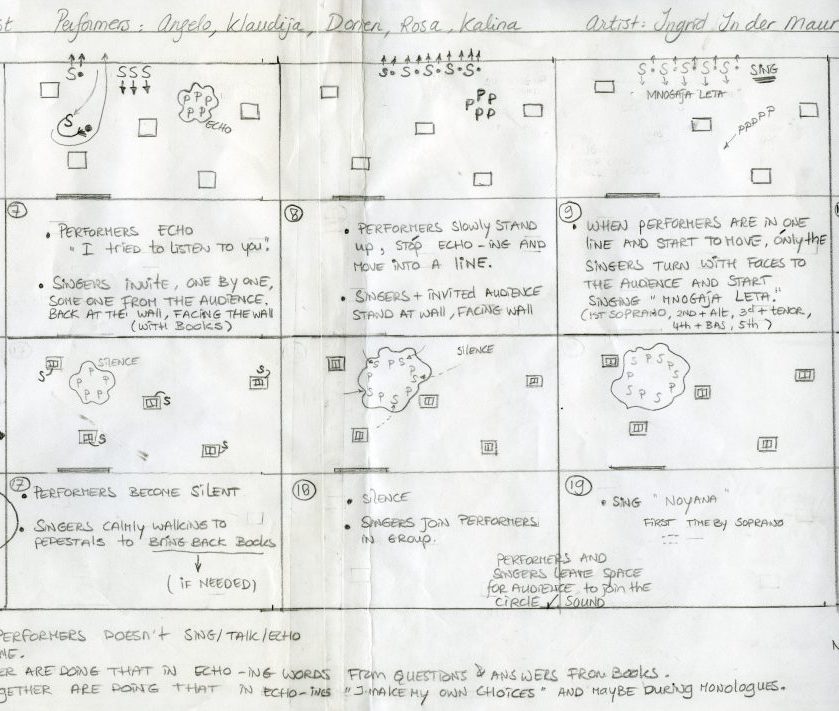 st Performers: Angelo, Klaudija, Dorien, Rosa, Kalina Artist: Ingrid In der Maur
S. SSS
P P P
P P
ECHO
S
S. S. S. S. S. S.
P P P
P P
S. S. S. S. S. S. SING
MNOGAJA LETA
PPPPP
7
• PERFORMERS ECHO
"I TRIED TO LISTEN TO YOU".
• SINGERS INVITE, ONE BY ONE,
SOME ONE FROM THE AUDIENCE.
BACK AT THE WALL, FACING THE WALL
(WITH BOOKS)
8
• PERFORMERS SLOWLY STAND
UP, STOP ECHO-ING AND
MOVE INTO A LINE.
• SINGERS + INVITED AUDIENCE
STAND AT WALL, FACING WALL
9
• WHEN PERFORMERS ARE IN ONE
LINE AND START TO MOVE, ONLY THE
SINGERS TURN WITH FACES TO
THE AUDIENCE AND START
SINGING "MNOGAJA LETA."
(1ST SOPRANO, 2ND + ALT, 3rd + TENOR,
4th + BAS, 5th)
SILENCE
S
P P P P P
S
S
S
S
SILENCE
S P S P S P S P S P
S P S P S P S P S P
17
• PERFORMERS BECOME SILENT
• SINGERS CALMLY WALKING TO
PEDESTALS TO BRING BACK BOOKS
(IF NEEDED)
18
• SILENCE
• SINGERS JOIN PERFORMERS
IN GROUP.
19
• SING "NOYANA"
FIRST TIME BY SOPRANO
PERFORMERS AND
SINGERS LEAVE SPACE
FOR AUDIENCE TO JOIN THE
CIRCLE / SOUND
PERFORMERS DOESN'T SING/TALK/ECHO
ME.
ER ARE DOING THAT IN ECHO-ING WORDS FROM QUESTIONS & ANSWERS FROM BOOKS.
GETHER ARE DOING THAT IN ECHO-ING "I MAKE MY OWN CHOICES" AND MAYBE DURING MONOLOGUES.